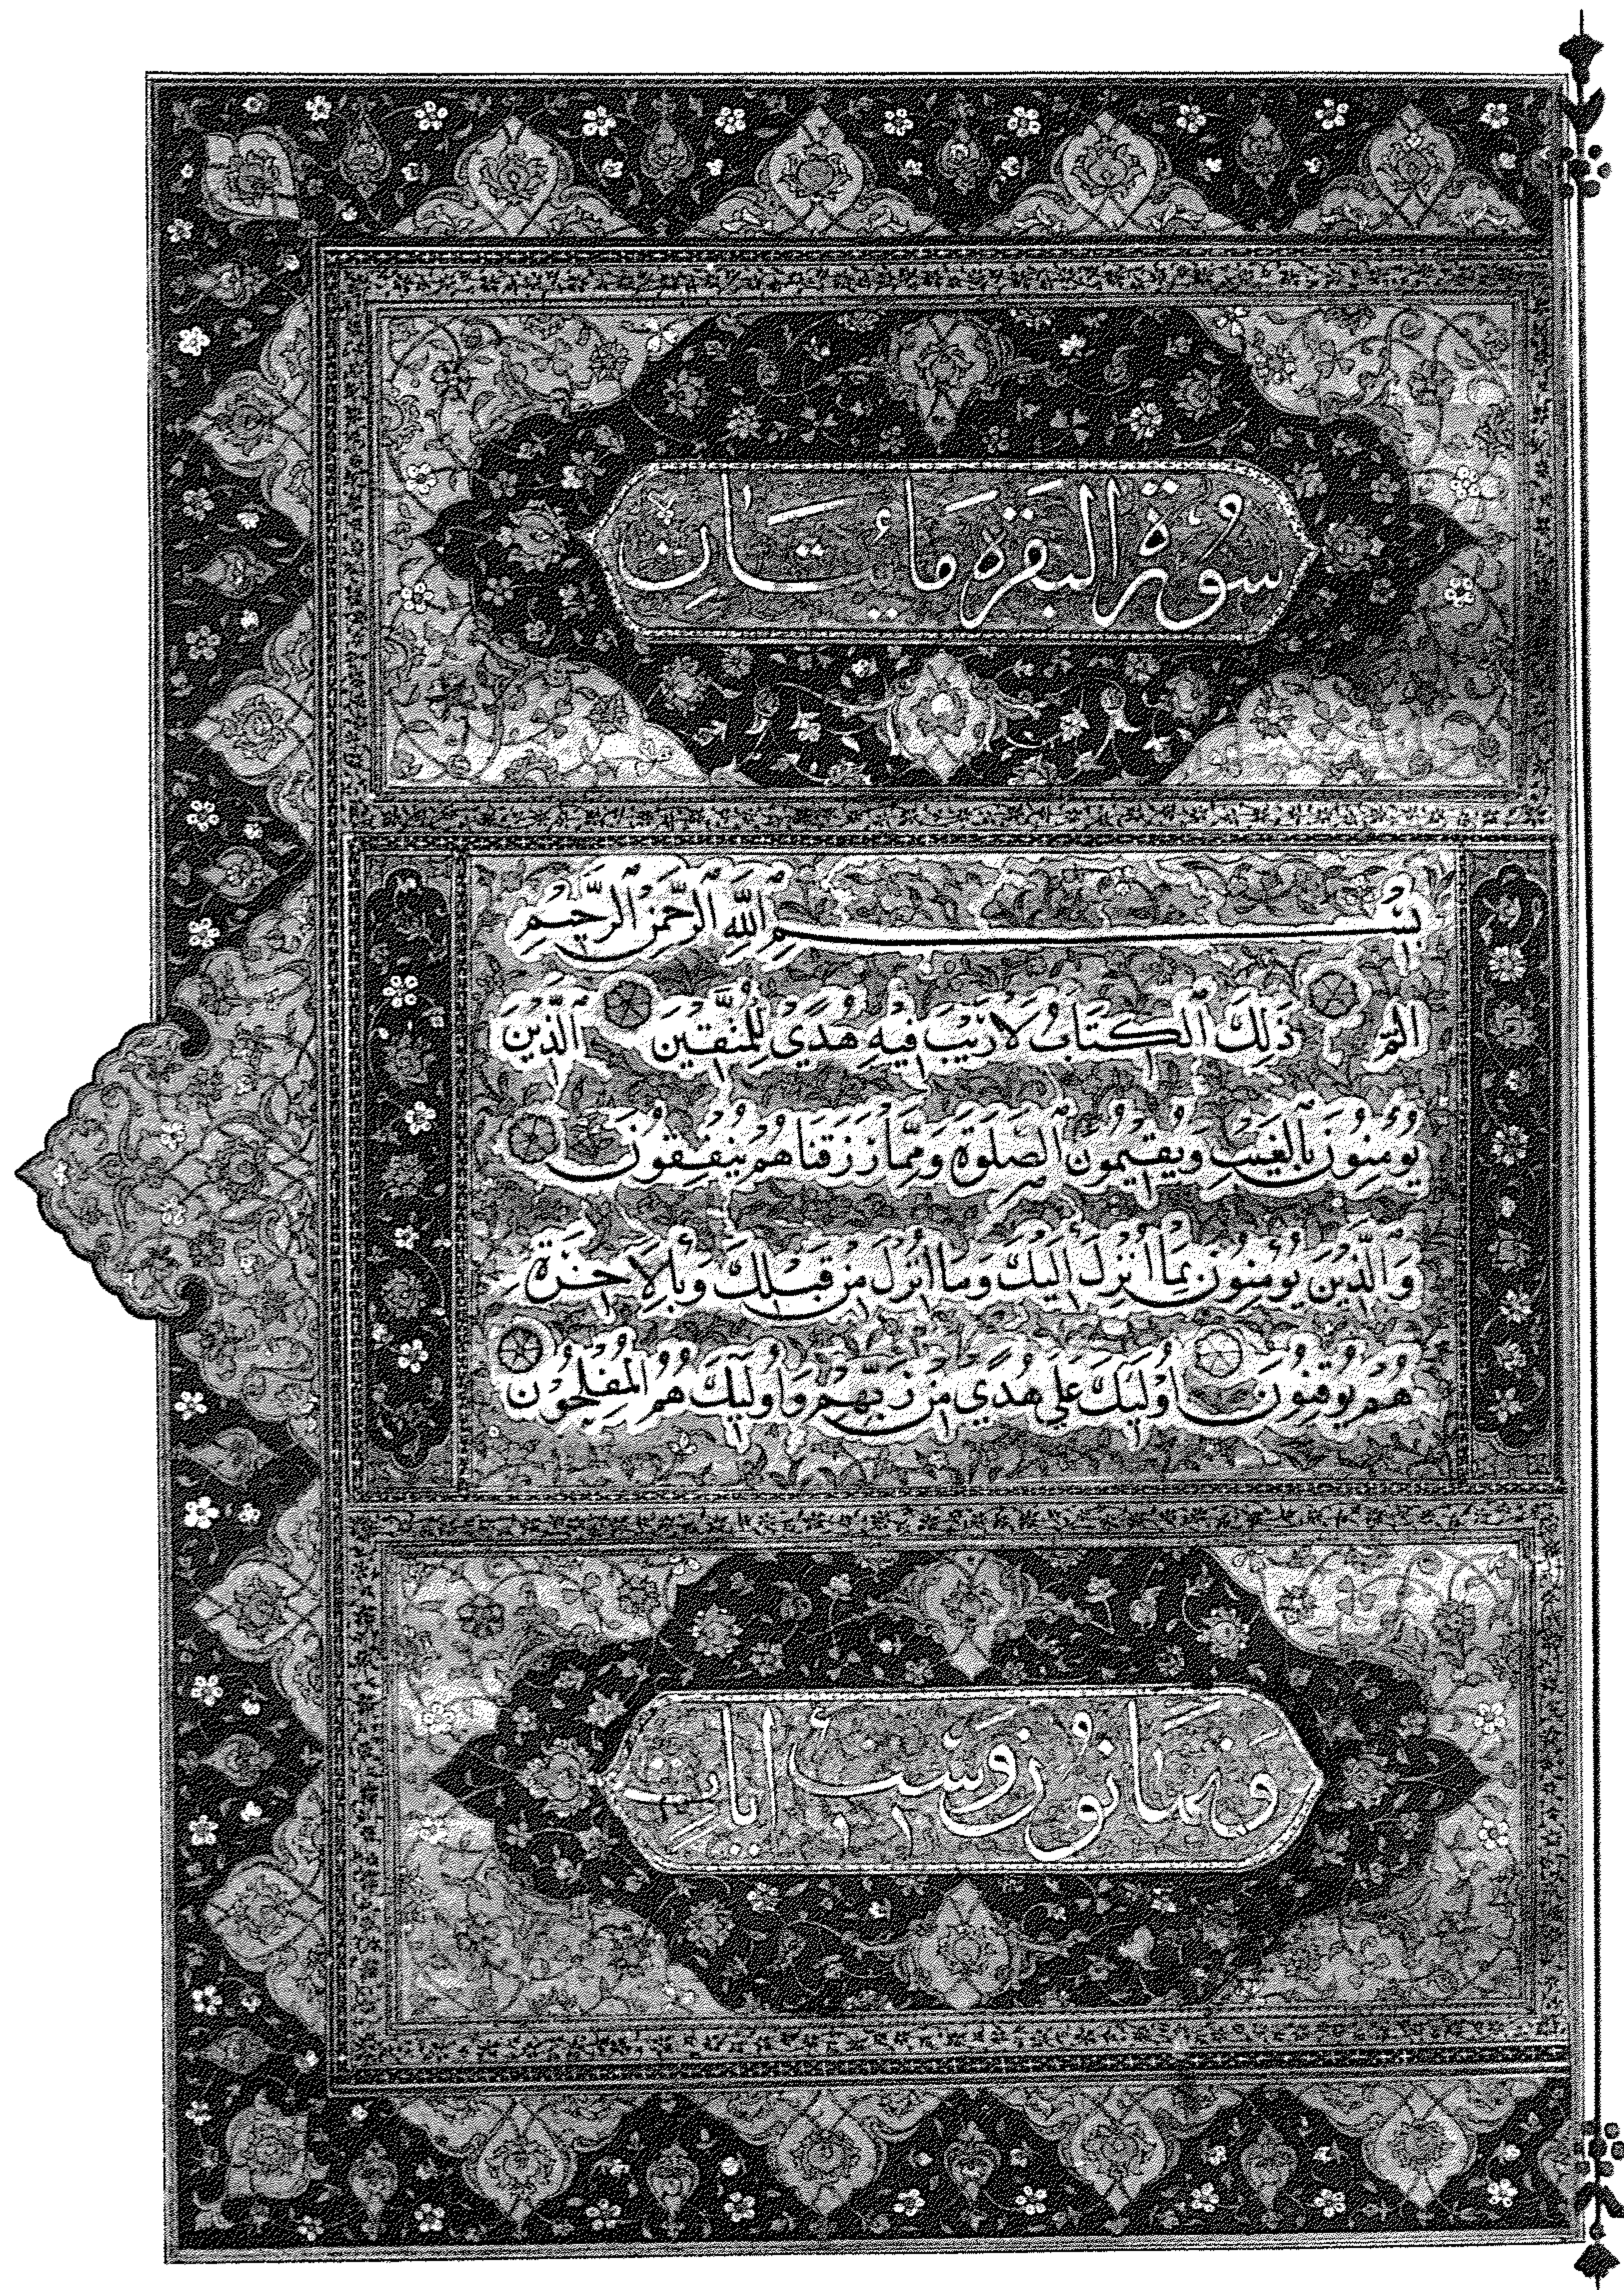 سُورَةُ الْبَقَرَه مَائَتَانِ
بِسْمِ اللَّهِ الرَّحْمٰنِ الرَّحِيمِ
الٓمٓ ذٰلِكَ الْكِتَابُ لَا رَيْبَ فِيهِ هُدًى لِلْمُتَّقِينَ الَّذِينَ
يُؤْمِنُونَ بِالْغَيْبِ وَيُقِيمُونَ الصَّلٰوةَ وَمِمَّا رَزَقْنَاهُمْ يُنْفِقُونَ
وَالَّذِينَ يُؤْمِنُونَ بِمَا أُنْزِلَ إِلَيْكَ وَمَا أُنْزِلَ مِنْ قَبْلِكَ وَبِالْآخِرَةِ
هُمْ يُوقِنُونَ أُولٰئِكَ عَلَى هُدًى مِنْ رَبِّهِمْ وَأُولٰئِكَ هُمُ الْمُفْلِحُونَ
وَثَمَانُونَ وَسِتُّ اٰيَاتٍ